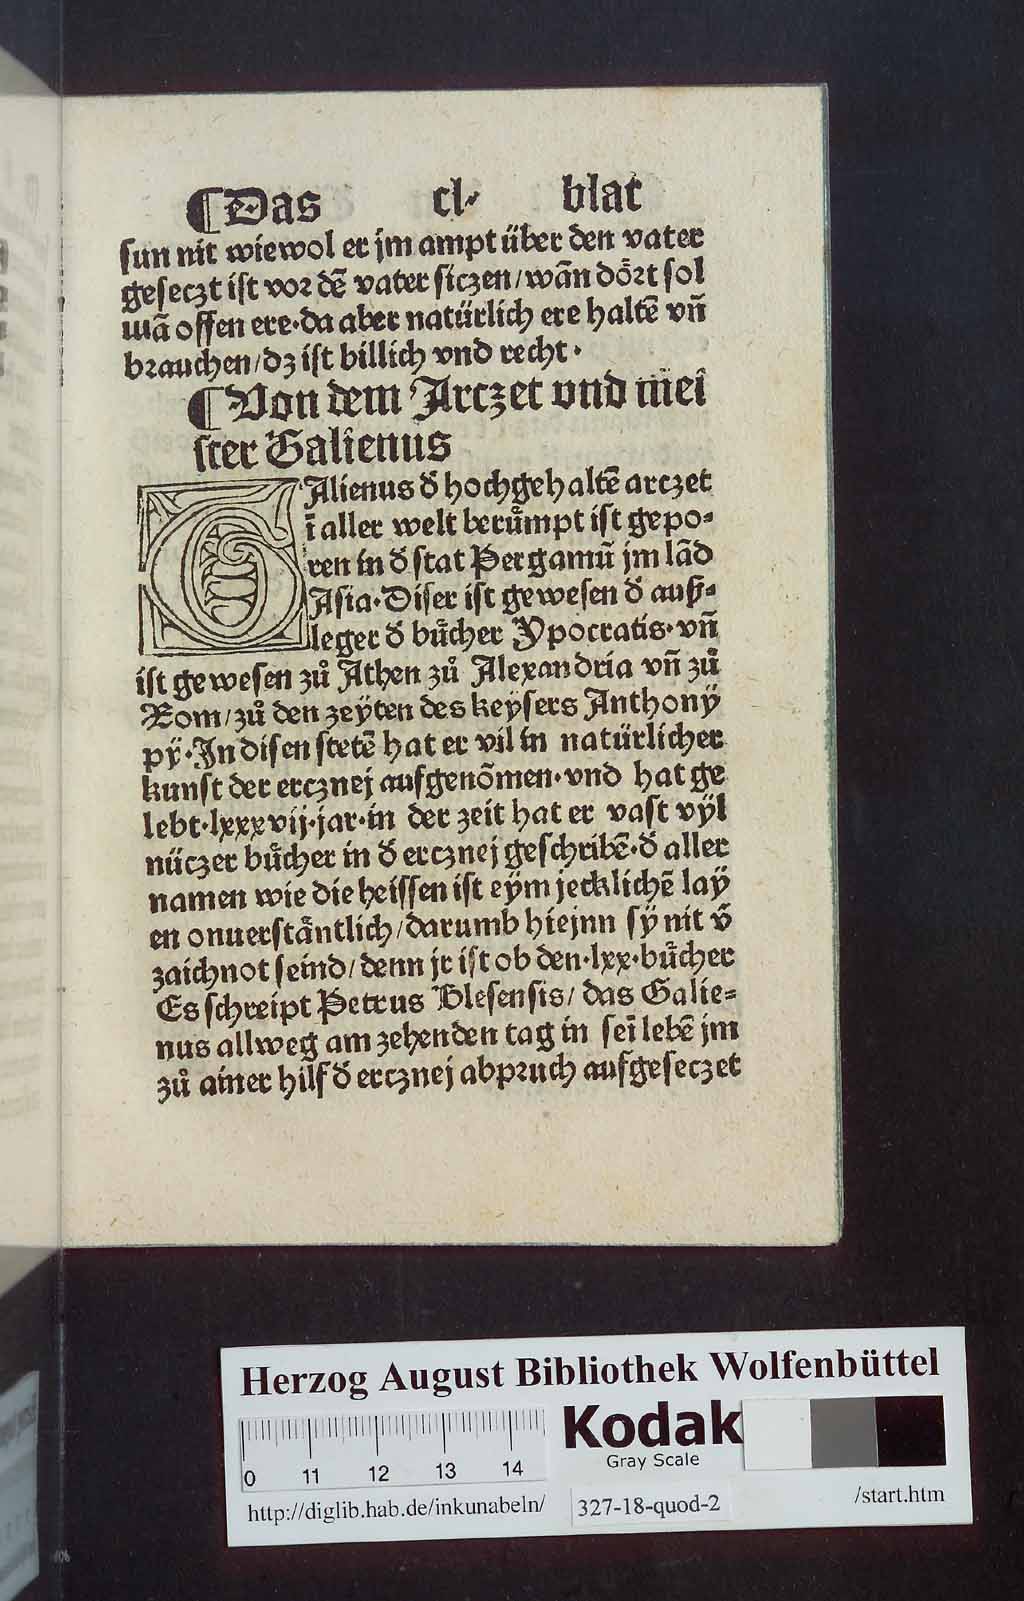 ¶Das cl· blat
sun nit wiewol er jm ampt über den vater
geseczt ist vor dē vater siczen/wān dört sol
mā offen ere·da aber natürlich ere haltē vn̄
brauchen/dz ist billich vnd recht·
¶Von dem Arczet vnd mei
ster Galienus
GAlienus d̄ hochgehaltē arczet
ī aller welt berůmpt ist gepo-
ren in d̄ stat Pergamū jm lād
Asia·Diser ist gewesen d̄ auß-
leger d̄ bůcher Ypocratis·vn̄
ist gewesen zů Athen zů Alexandria vn̄ zů
Rom/zů den zeÿten des keÿsers Anthonÿ
pÿ·In disen stetē hat er vil in natürlicher
kunst der ercznej aufgenōmen·vnd hat ge
lebt·lxxxvij·jar·in der zeit hat er vast vÿl
nüczer bůcher in d̄ ercznej geschribē·d̄ aller
namen wie die heissen ist eÿm jecklichē laÿ
en onuerståntlich/darumb hiejnn sÿ nit v̄
zaichnot seind/denn jr ist ob den·lxx·bůcher
Es schreipt Petrus Blesensis/das Galie-
nus allweg am zehenden tag in seī lebē jm
zů ainer hilf d̄ ercznej abpruch aufgeseczet
Herzog August Bibliothek Wolfenbüttel
Kodak
Gray Scale
0 11 12 13 14
http://diglib.hab.de/inkunabeln/ 327-18-quod-2 /start.htm